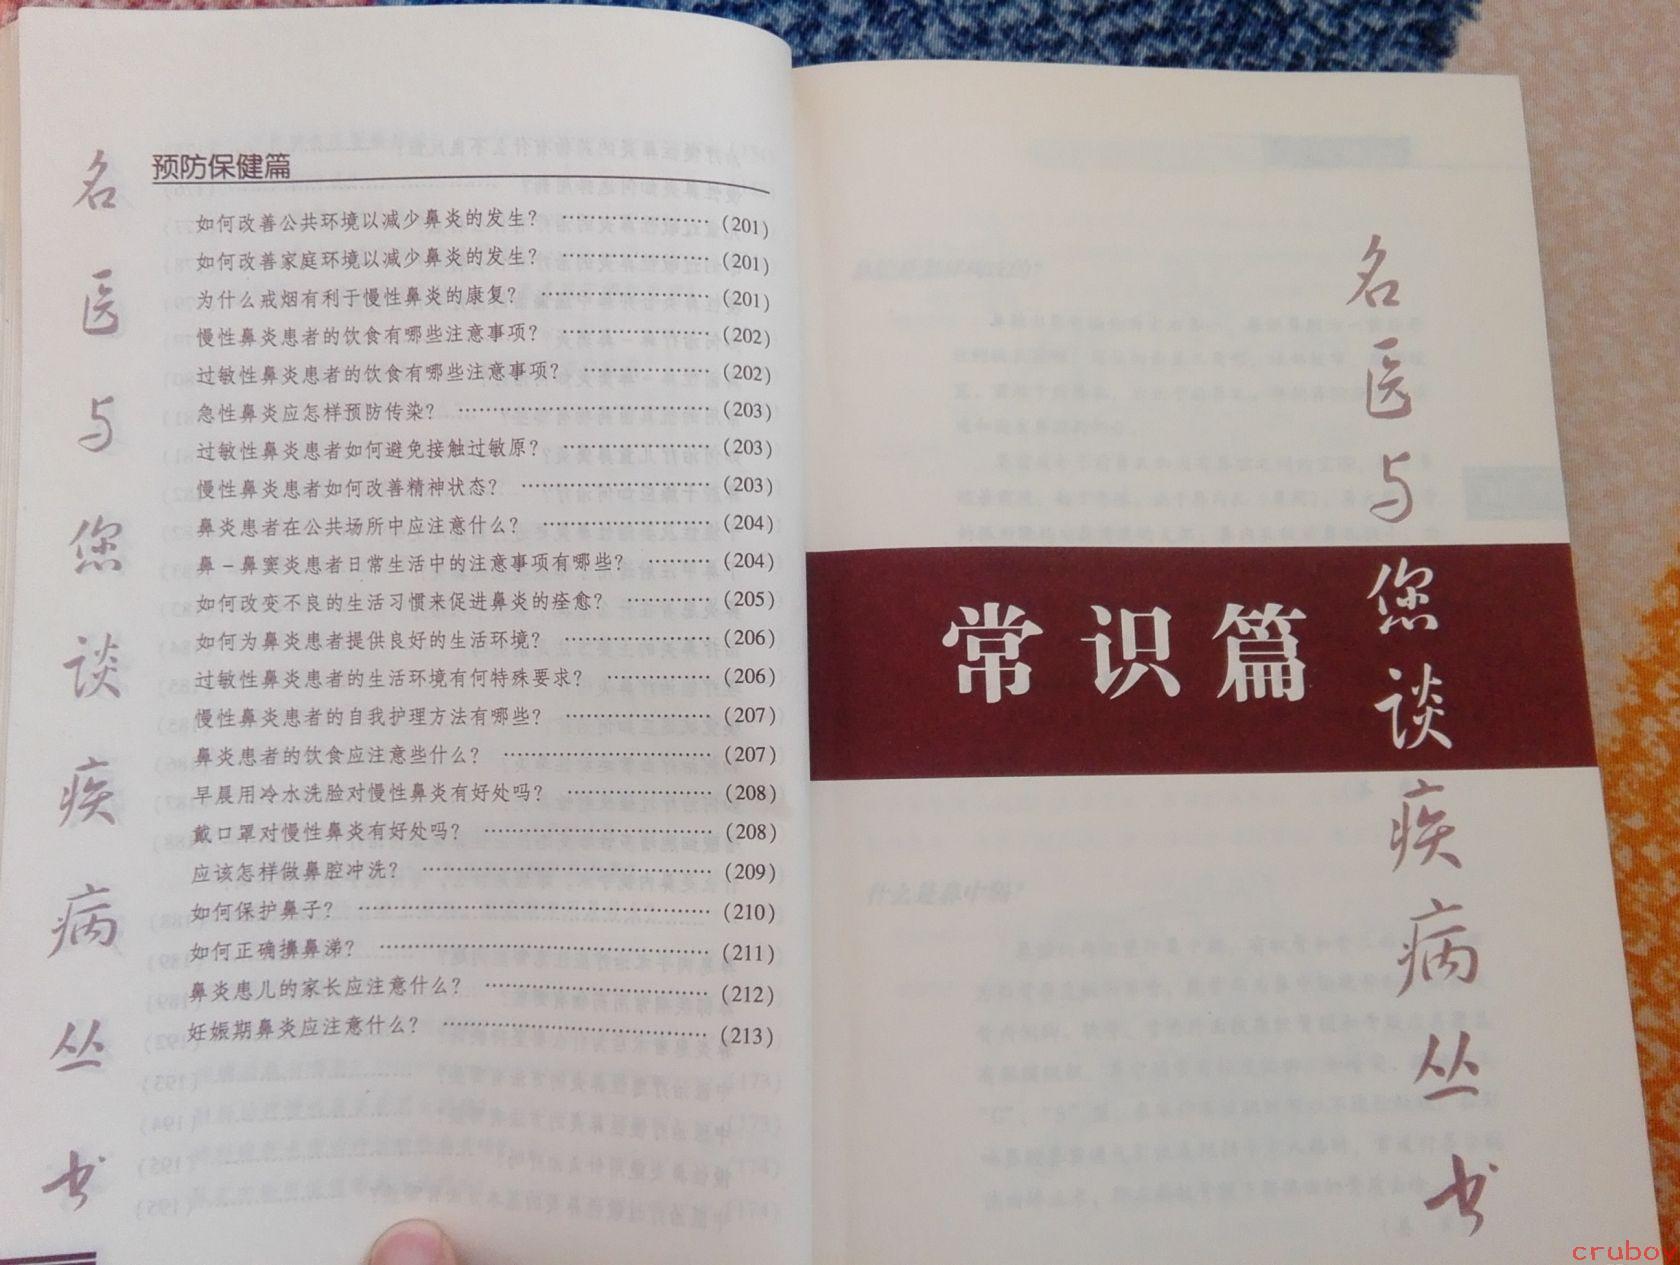 名医与您谈疾病丛书
预防保健篇
如何改善公共环境以减少鼻炎的发生？ ………………… (201)
如何改善家庭环境以减少鼻炎的发生？ ………………… (201)
为什么戒烟有利于慢性鼻炎的康复？ …………………… (201)
慢性鼻炎患者的饮食有哪些注意事项？ ………………… (202)
过敏性鼻炎患者的饮食有哪些注意事项？ ……………… (202)
急性鼻炎应怎样预防传染？ ……………………………… (203)
过敏性鼻炎患者如何避免接触过敏原？ ………………… (203)
慢性鼻炎患者如何改善精神状态？ ……………………… (203)
鼻炎患者在公共场所中应注意什么？ …………………… (204)
鼻－鼻窦炎患者日常生活中的注意事项有哪些？ ……… (204)
如何改变不良的生活习惯来促进鼻炎的痊愈？ ………… (205)
如何为鼻炎患者提供良好的生活环境？ ………………… (206)
过敏性鼻炎患者的生活环境有何特殊要求？ …………… (206)
慢性鼻炎患者的自我护理方法有哪些？ ………………… (207)
鼻炎患者的饮食应注意些什么？ ………………………… (207)
早晨用冷水洗脸对慢性鼻炎有好处吗？ ………………… (208)
戴口罩对慢性鼻炎有好处吗？ …………………………… (208)
应该怎样做鼻腔冲洗？ …………………………………… (209)
如何保护鼻子？ …………………………………………… (210)
如何正确擤鼻涕？ ………………………………………… (211)
鼻炎患儿的家长应注意什么？ …………………………… (212)
妊娠期鼻炎应注意什么？ ………………………………… (213)
常识篇
名医与您谈疾病丛书
cruboy